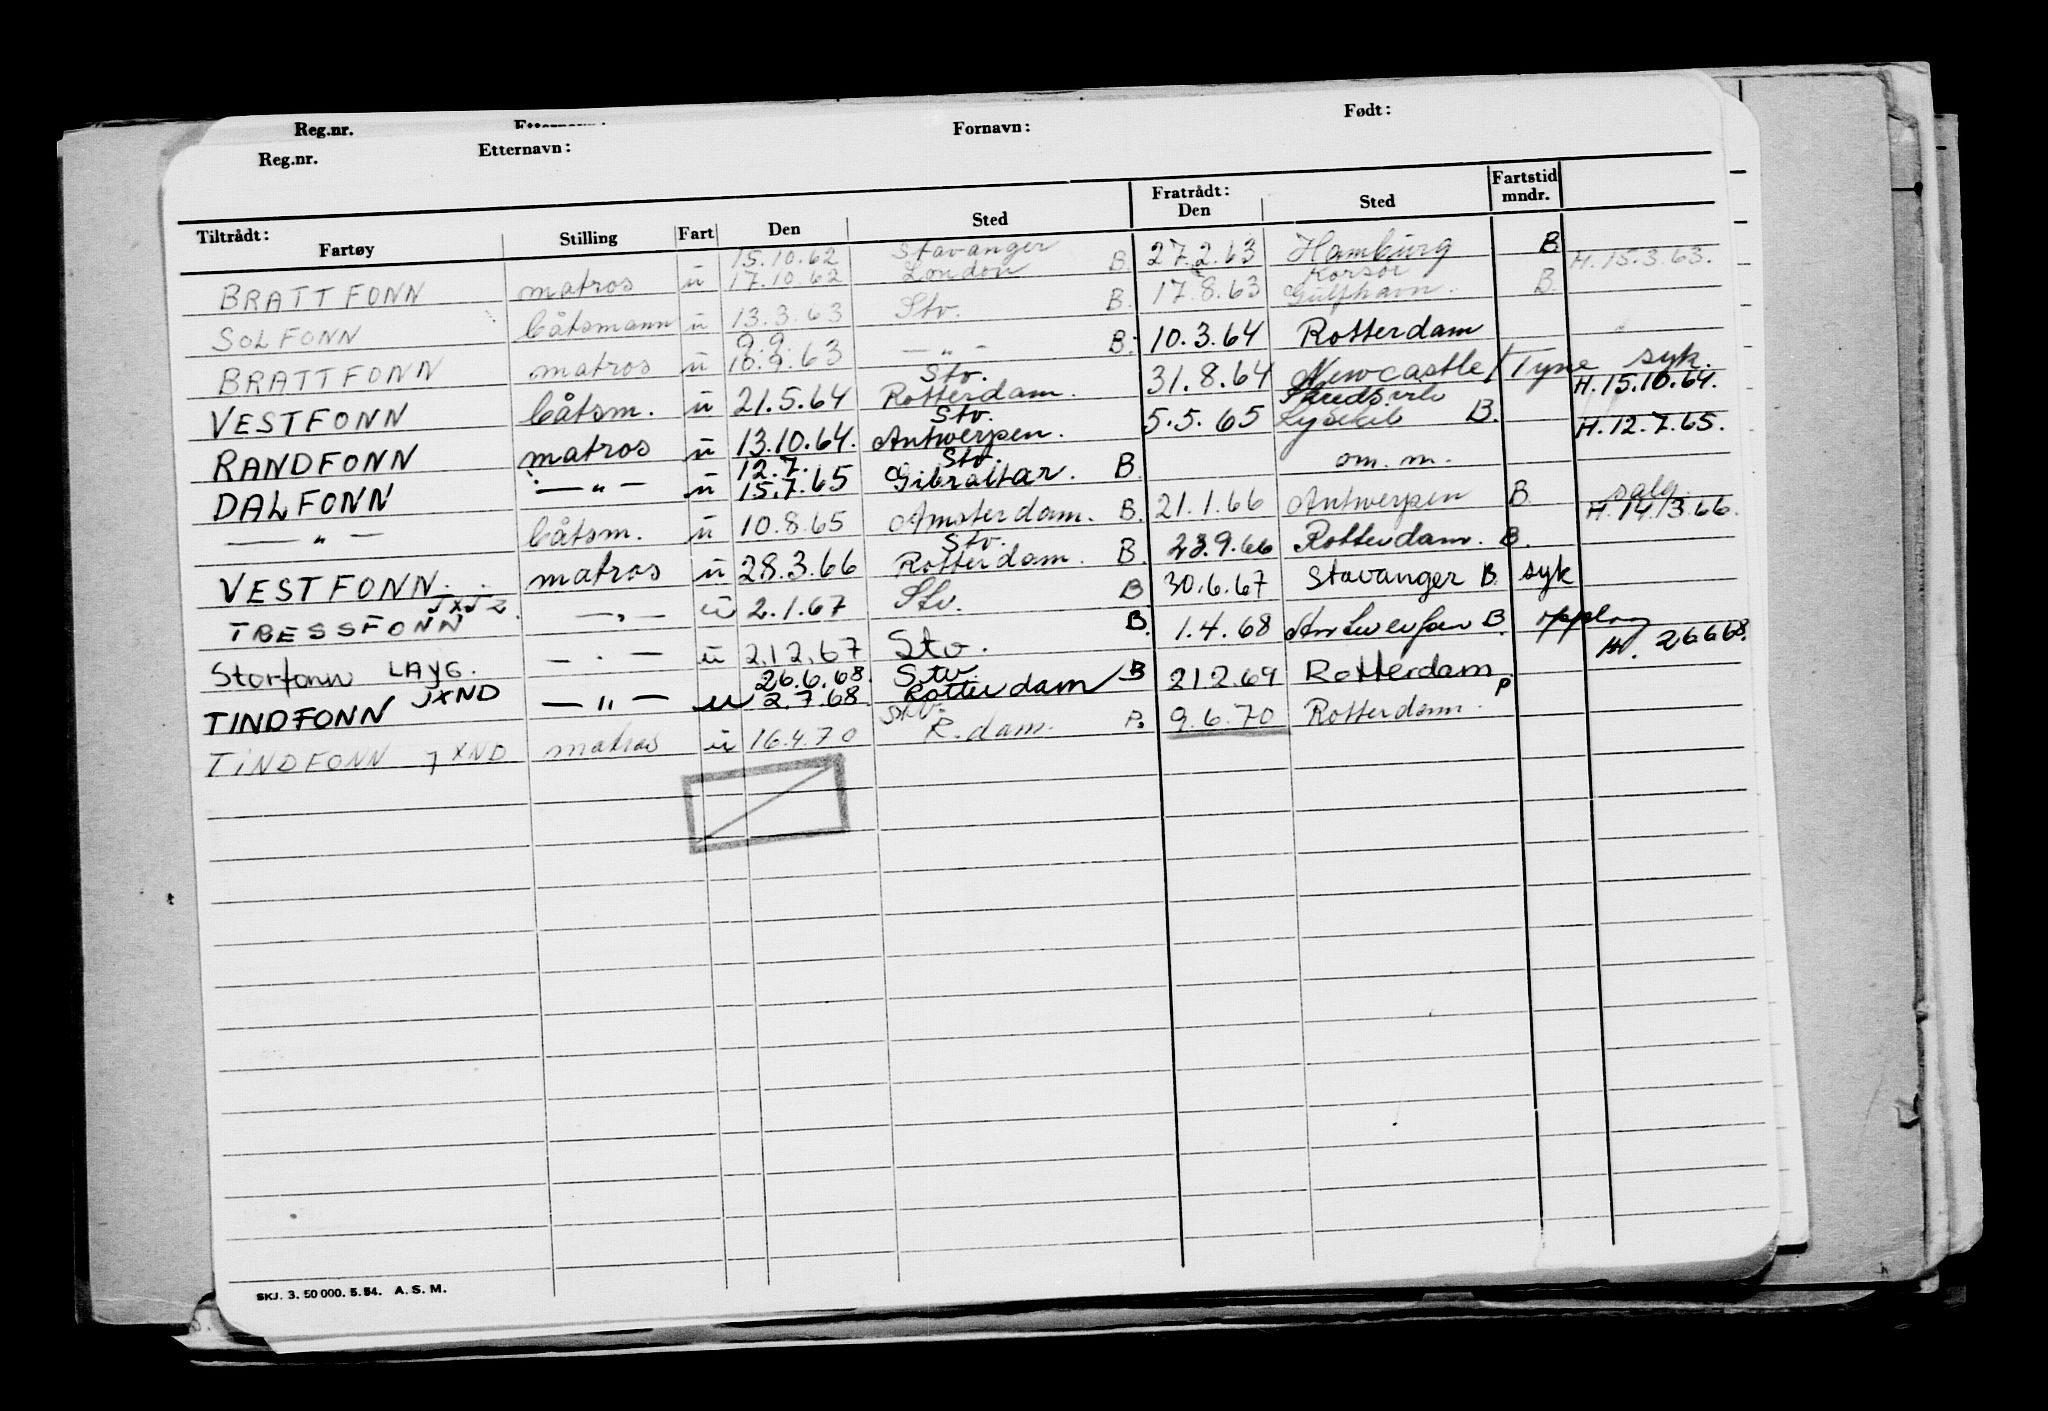 Reg.nr. Fornavn: Født:
Reg.nr. Etternavn:
Tiltrådt: Fratrådt: Fartstid
Fartøy Stilling Fart Den Sted Den Sted mndr.
15.10.62 Stavanger
BRATTFONN matros u 17.10.62 London B. 27.2.63 Hamburg B H.15.3.63.
Korsör
SOLFONN båtsmann u 13.3.63 Stv. B. 17.8.63 Gulfhavn. B.
9.9.
BRATTFONN matros u 10.9.63 — „ — B. 10.3.64 Rotterdam
Stv. syk.
VESTFONN båtsm. u 21.5.64 Rotterdam. 31.8.64 Newcastle/Tyne H.15.10.64.
Stv.
RANDFONN matros u 13.10.64. Antwerpen. 5.5.65 Lysekil B. H.12.7.65.
12.7. Stv.
DALFONN — „ — u 15.7.65 Gibraltar. B. om. m.
salg
— „ — båtsm. u 10.8.65 Amsterdam. B. 21.1.66 Antwerpen B. H.14.3.66.
Stv.
VESTFONN. matros u 28.3.66 Rotterdam. B. 23.9.66 Rotterdam. B.
JXJZ.
TBESSFONN — „ — u 2.1.67 Stv. B 30.6.67 Stavanger B. syk
Storfonn LAYG. — „ — u 2.12.67 Stv. B. 1.4.68 Antwerpen B. opplag H. 26668.
26.6.68. Stv.
TINDFONN JXND — „ — u 2.7.68 Rotterdam B 21.2.69 Rotterdam
Stv. P
TINDFONN JXND matros u 16.4.70 R.dam. P. 9.6.70 Rotterdam.
SKJ. 3. 50 000. 5.54. A. S. M.